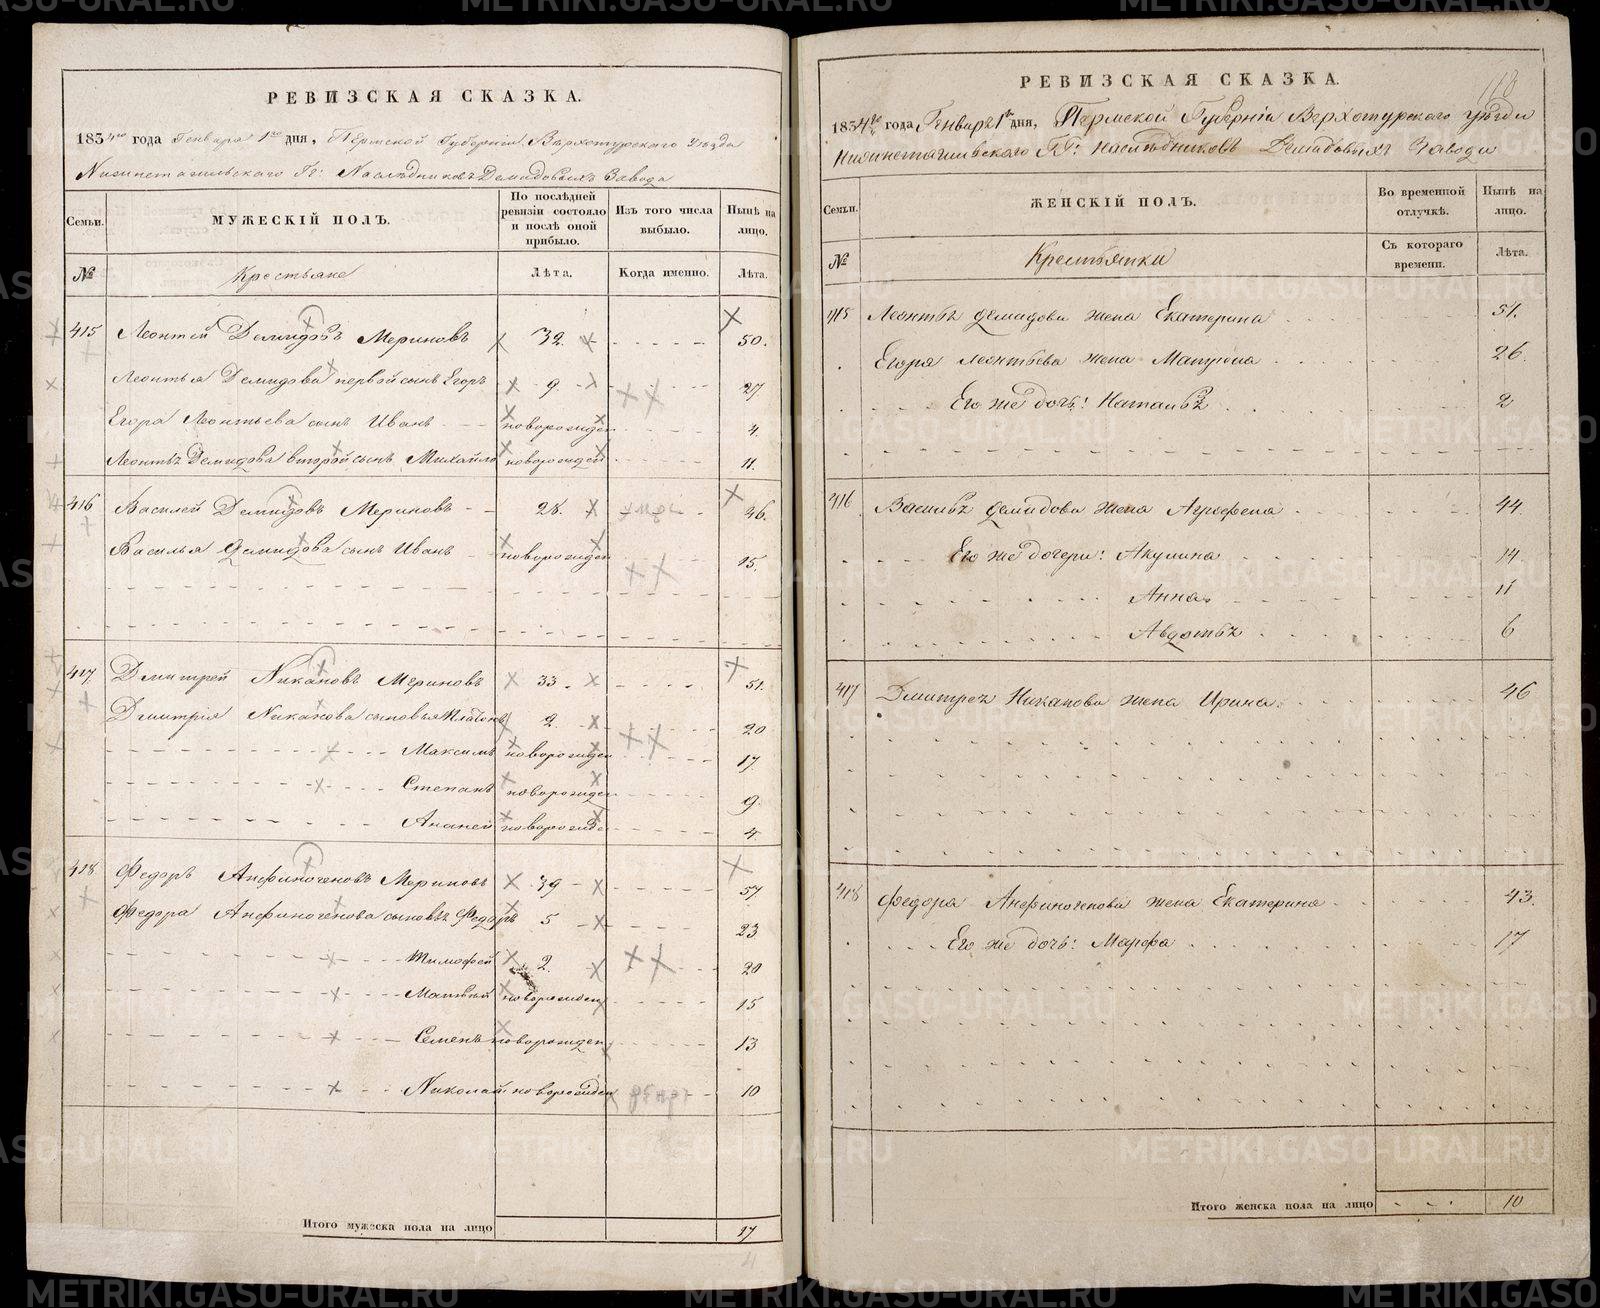 РЕВИЗСКАЯ СКАЗКА.
1834го года Генваря 1го дня, Пермской Губернии Верхотурского Уезда
Нижнетагильского Гг: Наследниковъ Демидовыхъ Завода
Семьи.
МУЖЕСКІЙ ПОЛЪ.
По послѣдней ревизіи состояло и послѣ оной прибыло.
Изъ того числа выбыло.
Нынѣ на лицо.
№
Крестьяне
Лѣта.
Когда именно.
Лѣта.
415 Леонтей Демидовъ Мериновъ 32. 50.
Леонтья Демидова первой сынъ Егоръ 9. 27
Егора Леонтьева сынъ Иванъ новорожден 4.
Леонтья Демидова второй сынъ Михайло новорожден 11.
416 Василей Демидовъ Мериновъ 28. 46.
Василья Демидова сынъ Иванъ новорожден 15.
417 Дмитрей Никановъ Мериновъ 33. 51.
Дмитрія Никанова сыновья Платонъ 2. 20
Максимъ новорожден 17.
Степанъ новорожден 9.
Ананей новорожден 4.
418 Федоръ Анфиногеновъ Мериновъ 39 57
Федора Анфиногенова сыновья Федоръ 5 23
Тимофей 2. 20
Матвей новорожден 15
Семенъ новорожден 13
Николай новорожден 10
Итого мужеска пола на лицо 17
РЕВИЗСКАЯ СКАЗКА.
1834го года Генваря 1го дня, Пермской Губерніи Верхотурского уезда
Нижнетагильского Гг: наследниковъ Демидовыхъ Завода
Семьи.
ЖЕНСКІЙ ПОЛЪ.
Во временной отлучкѣ.
Нынѣ на лицо.
№
Крестьянки
Съ котораго времени.
Лѣта.
415 Леонтья Демидова жена Екатерина 51.
Егора Леонтьева жена Матрона 26.
Его же дочь: Наталья 2
416 Василья Демидова жена Агрофена 44
Его же дочери: Акулина 14
Анна 11
Авдотья 6
417 Дмитрея Никанова жена Ирина 46
418 Федора Анфиногенова жена Екатерина 43.
Его же дочь: Марфа 17
Итого женска пола на лицо 10
METRIKI.GASO-URAL.RU